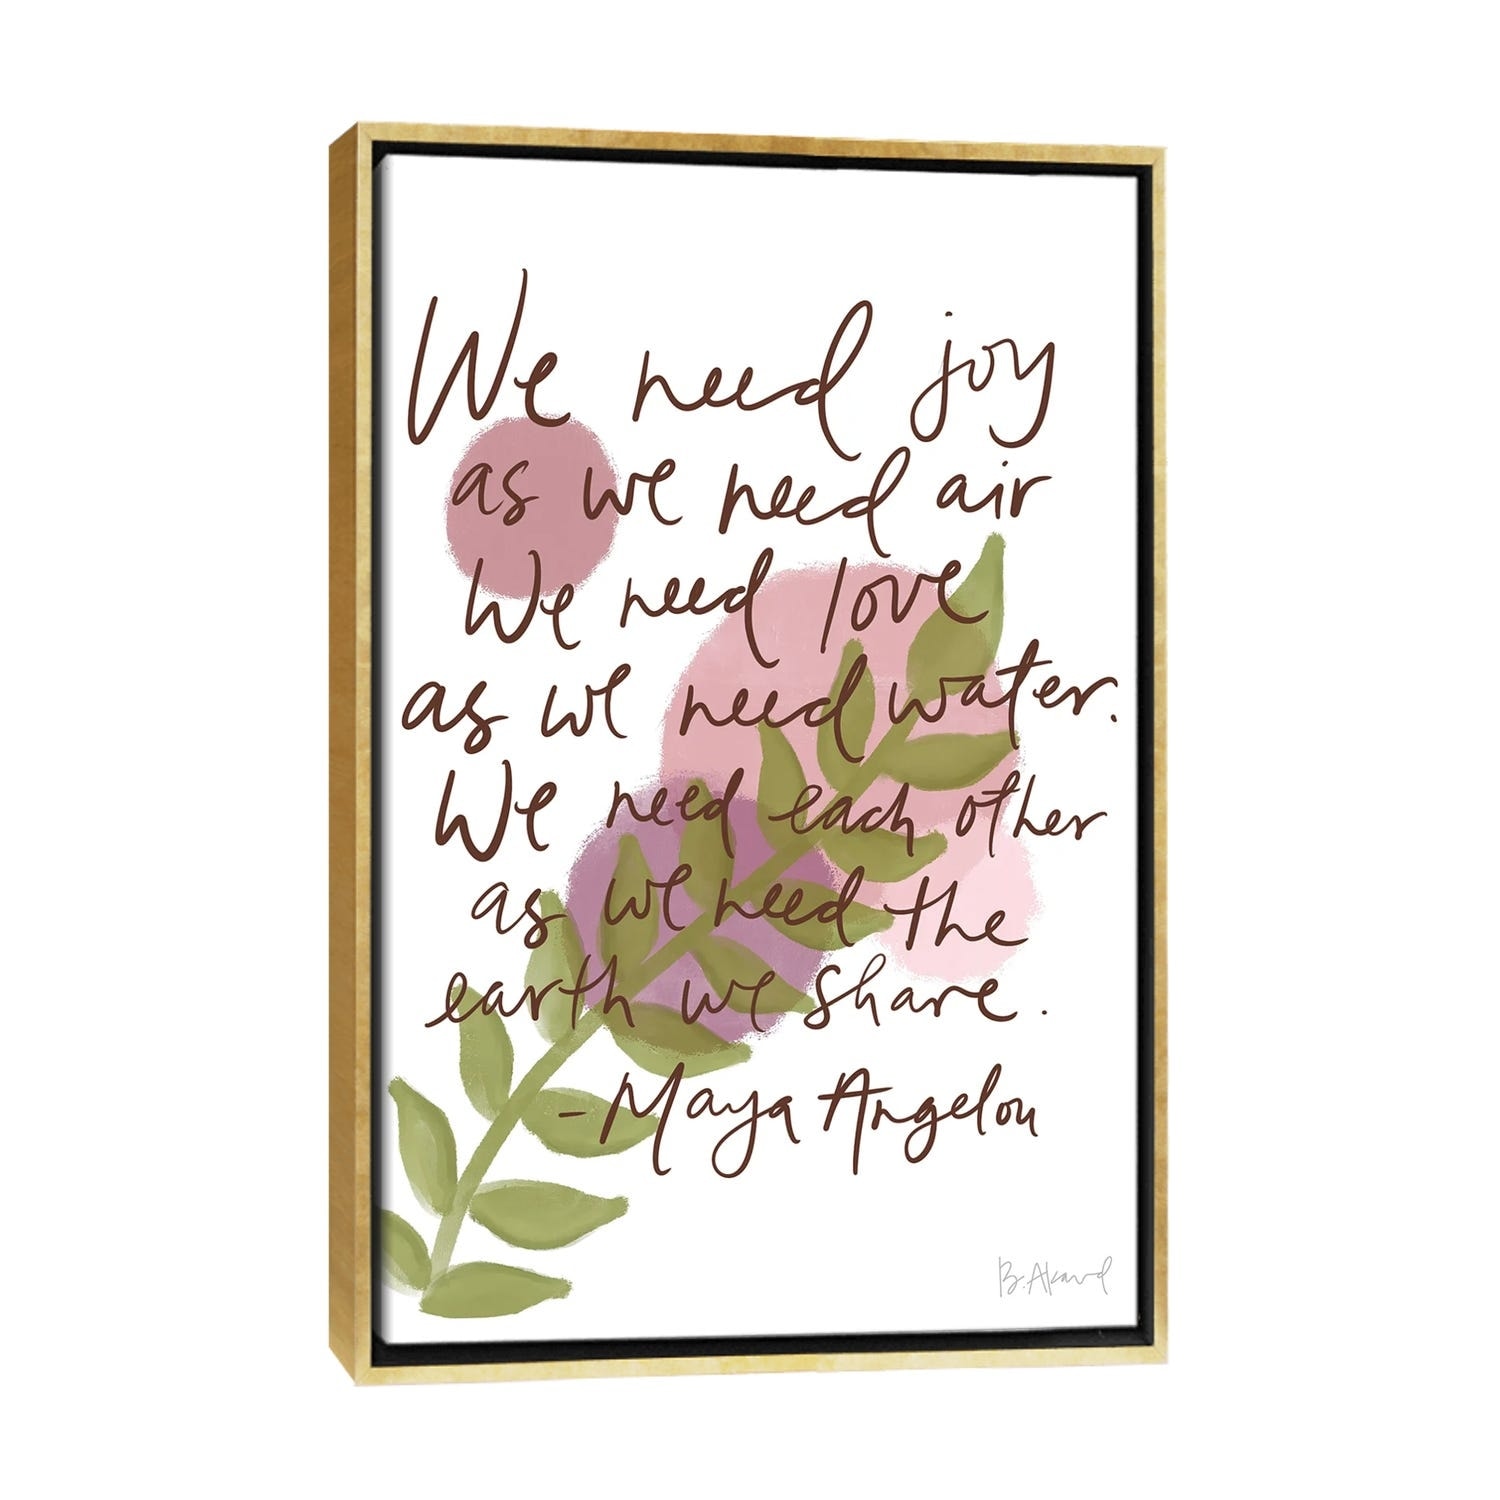 We need joy
as we need air
We need love
as we need water.
We need each other
as we need the
earth we share.
-Maya Angelou
B. Akavd